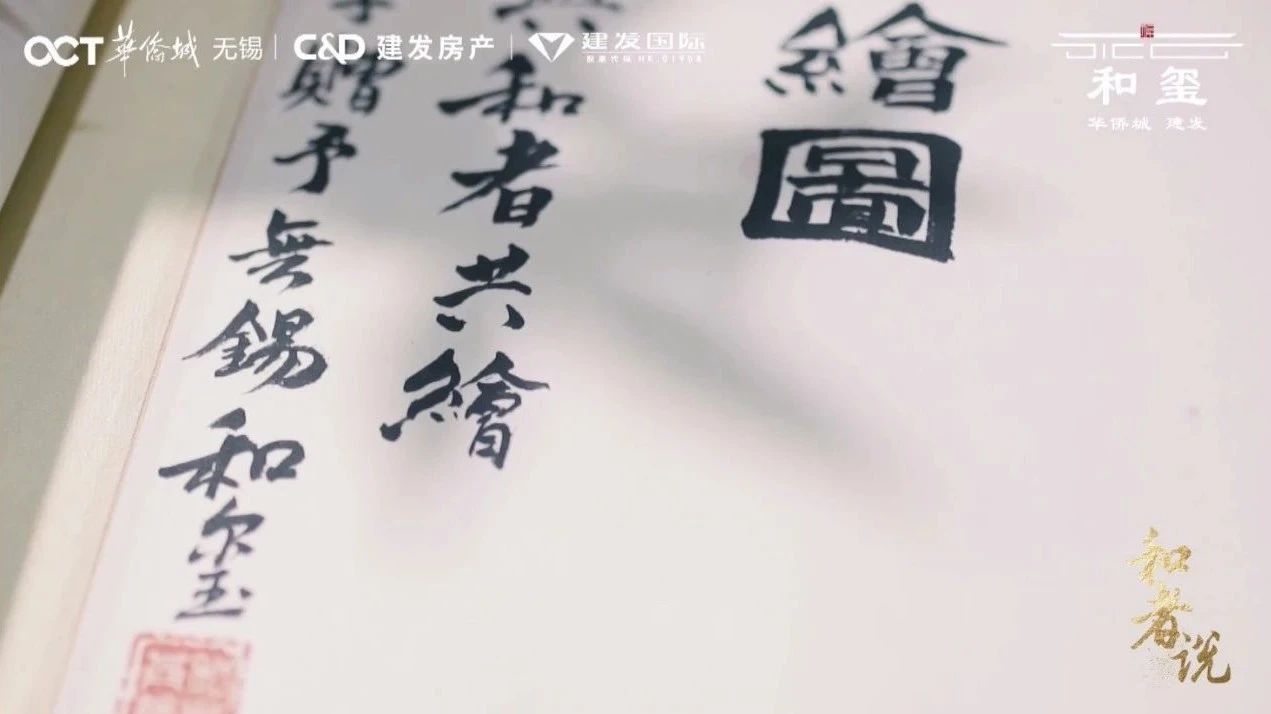 OCT 華僑城 无锡 | C&D 建发房产 | 建发国际
股票代码 HK.01908
和玺
华侨城 建发
繪圖
和者共繪
贈予無錫和玺
和者说